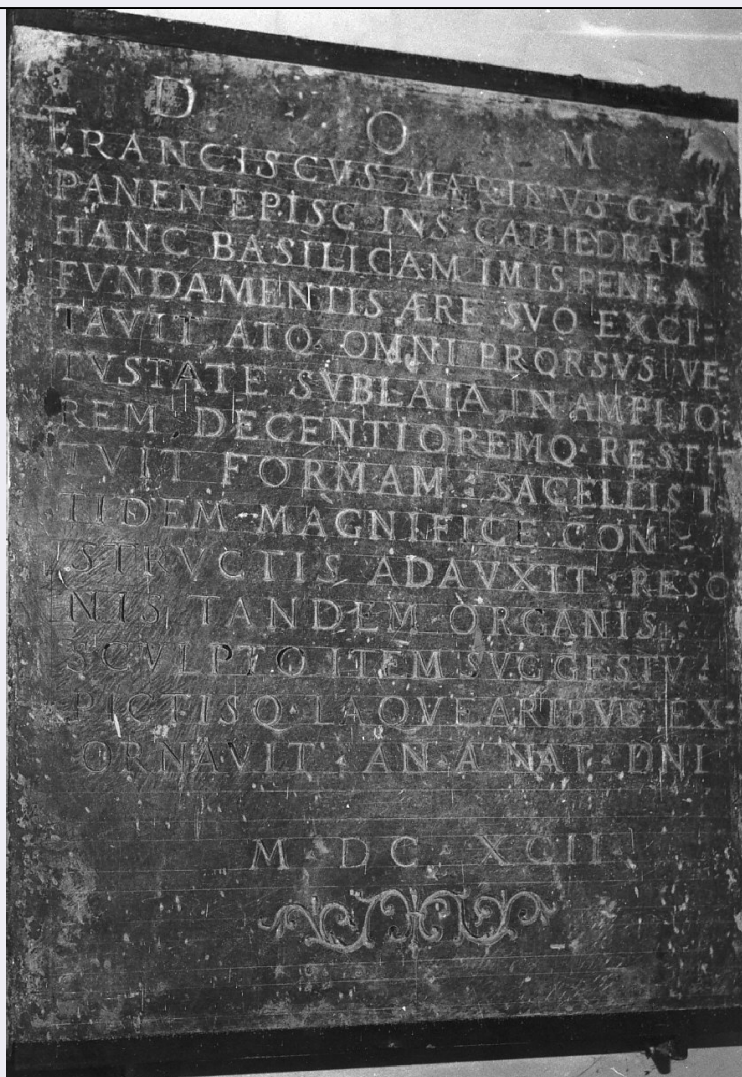 D O M
FRANCISCVS MARINVS CAM
PANEN EPISC INS CATHEDRALE
HANC BASILICAM IMIS PENE A
FVNDAMENTIS ÆRE SVO EXCI=
TAVIT, ATQ OMNI PRORSVS VE=
TVSTATE SVBLATA, IN AMPLIO=
REM DECENTIOREMQ RESTI
TVIT FORMAM SACELLIS I
TIDEM MAGNIFICE CON=
STRVCTIS ADAVXIT RESO
NIS TANDEM ORGANIS
SCVLPTO ITEM SVGGESTV
PICTISQ LAQVEARIBVS EX=
ORNAVIT AN A NAT DNI
M DC XCII